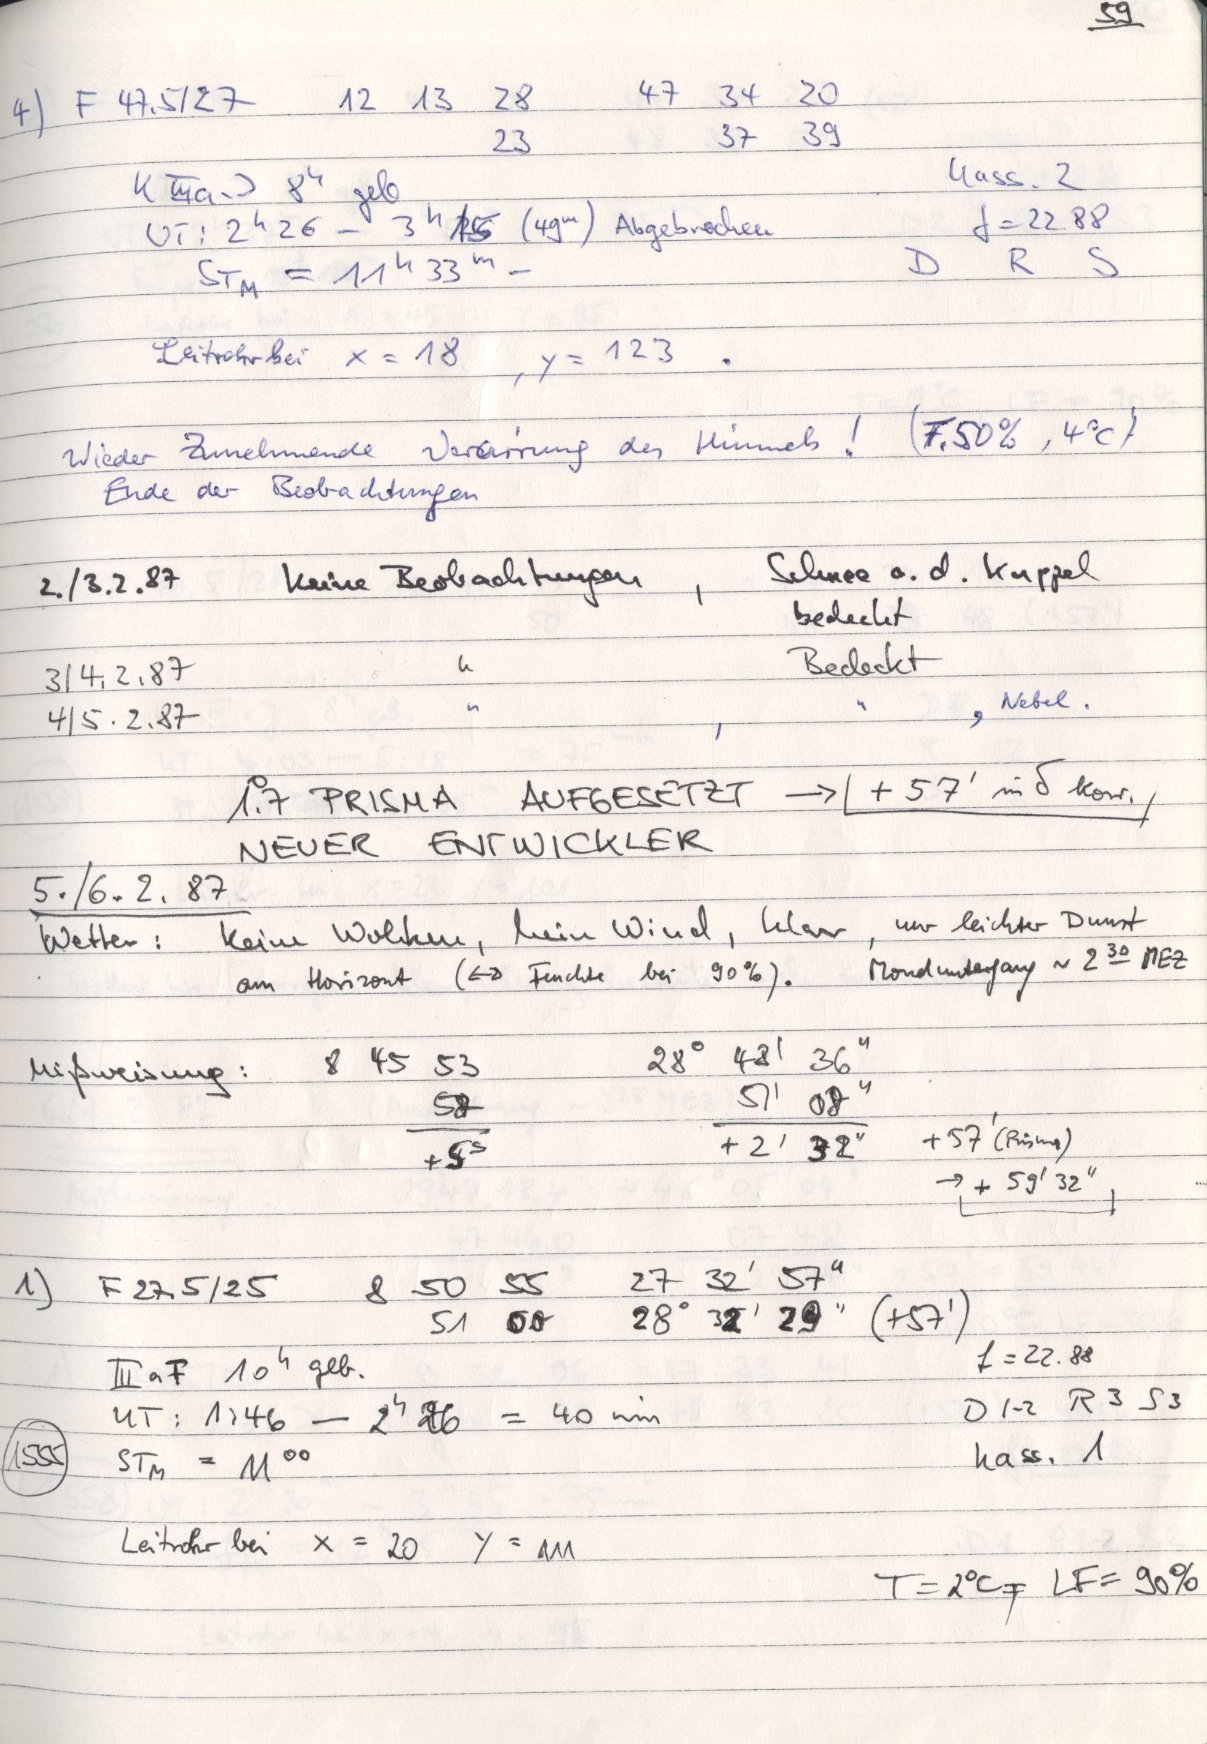 59
4) F 47.5/27 12 13 28 47 34 20
23 37 39
K IIIa-J 8h geb Kass. 2
UT: 2h 26 – 3h 15 (49m) Abgebrochen f = 22.88
STM = 11h 33m – D R S
Leitrohr bei x = 18 , y = 123 .
Wieder Zunehmende des Himmels! (F. 50% , 4°C)
Ende der Beobachtungen
2./3.2.87 Keine Beobachtungen , Schnee a. d. Kuppel
bedeckt
3/4.2.87 " Bedeckt
4/5.2.87 " , " , Nebel.
1°.7 PRISMA AUFGESETZT → + 57' in δ Korr.
NEUER ENTWICKLER
5./6.2.87
Wetter: Keine Wolken, kein Wind, klar, nur leichter Dunst
am Horizont (↔ Feuchte bei 90%). Monduntergang ~ 2 30 MEZ
Mißweisung: 8 45 53 28° 48' 36"
58 51' 08"
+5s +2' 32" +57' (Prisma)
→ + 59' 32"
1) F 27.5/25 8 50 55 27 32' 57"
51 00 28° 32' 29" (+57')
IIIaF 10h geb. f = 22.88
UT: 1h46 – 2h 26 = 40 min D 1-2 R 3 S 3
1555 STM = 11 00 Kass. 1
Leitrohr bei x = 20 y = 111
T = 2°C, LF = 90%